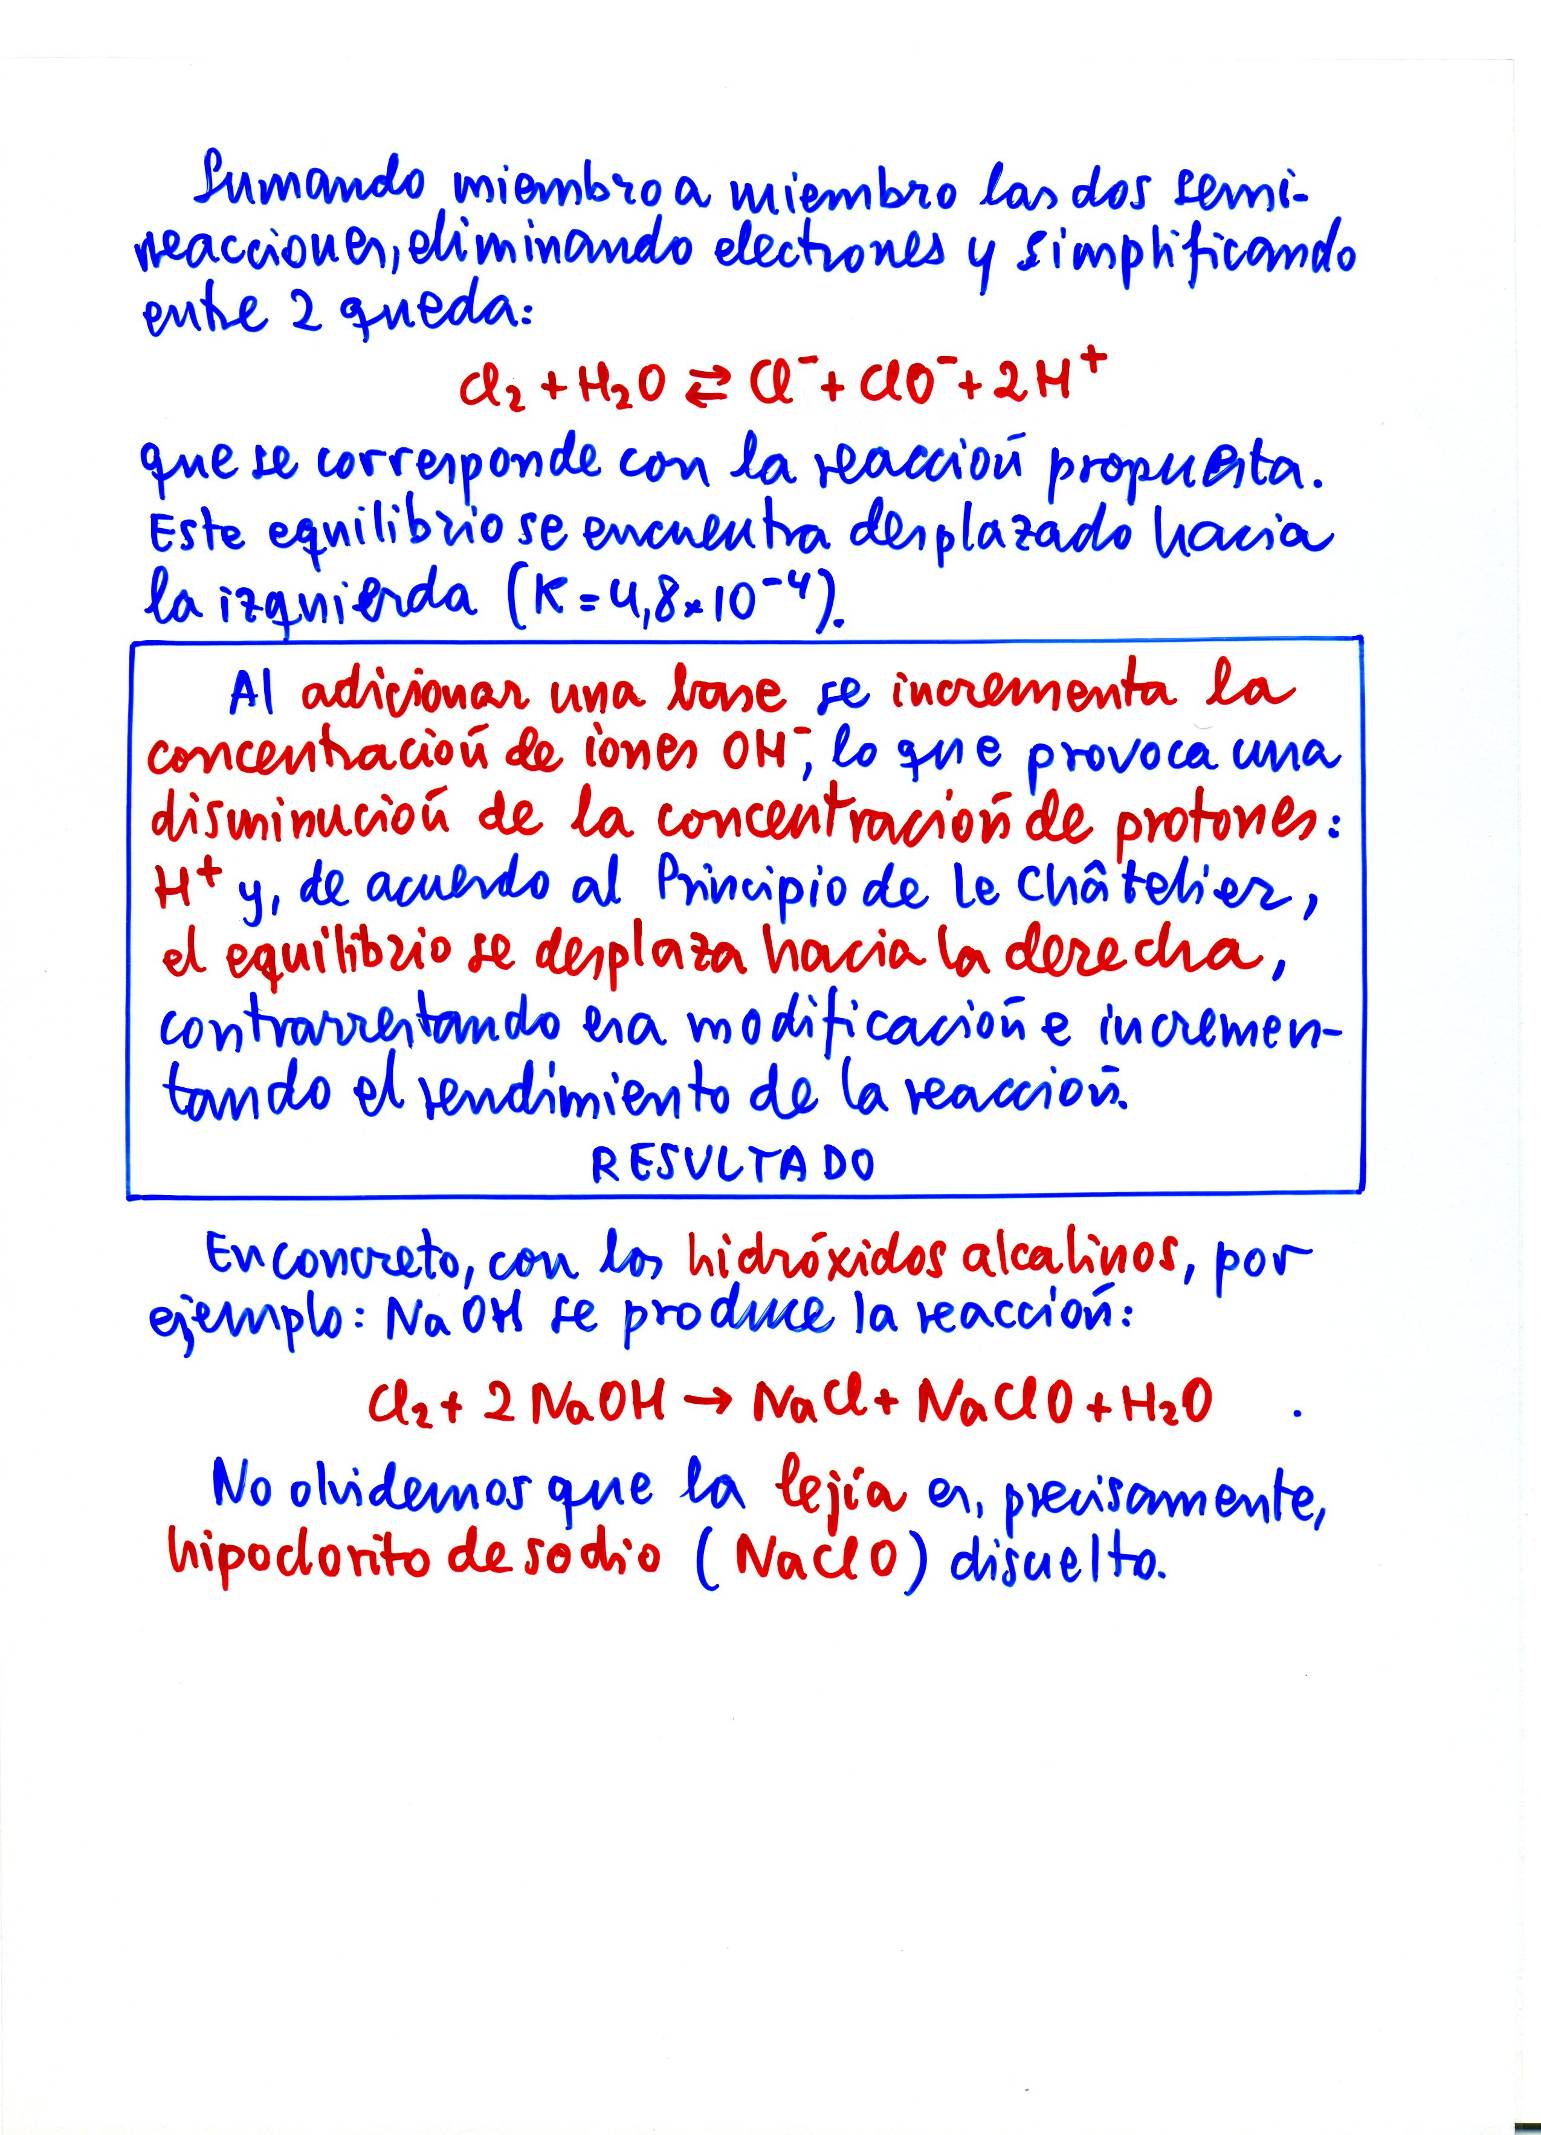 Sumando miembro a miembro las dos semi-
reacciones, eliminando electrones y simplificando
entre 2 queda:
Cl₂ + H₂O ⇄ Cl⁻ + ClO⁻ + 2H⁺
que se corresponde con la reacción propuesta.
Este equilibrio se encuentra desplazado hacia
la izquierda (K = 4,8 × 10⁻⁴).
Al adicionar una base se incrementa la
concentración de iones OH⁻, lo que provoca una
disminución de la concentración de protones:
H⁺ y, de acuerdo al Principio de Le Châtelier,
el equilibrio se desplaza hacia la derecha,
contrarrestando esa modificación e incremen-
tando el rendimiento de la reacción.
RESULTADO
En concreto, con los hidróxidos alcalinos, por
ejemplo: NaOH se produce la reacción:
Cl₂ + 2 NaOH → NaCl + NaClO + H₂O .
No olvidemos que la lejía es, precisamente,
hipoclorito de sodio (NaClO) disuelto.